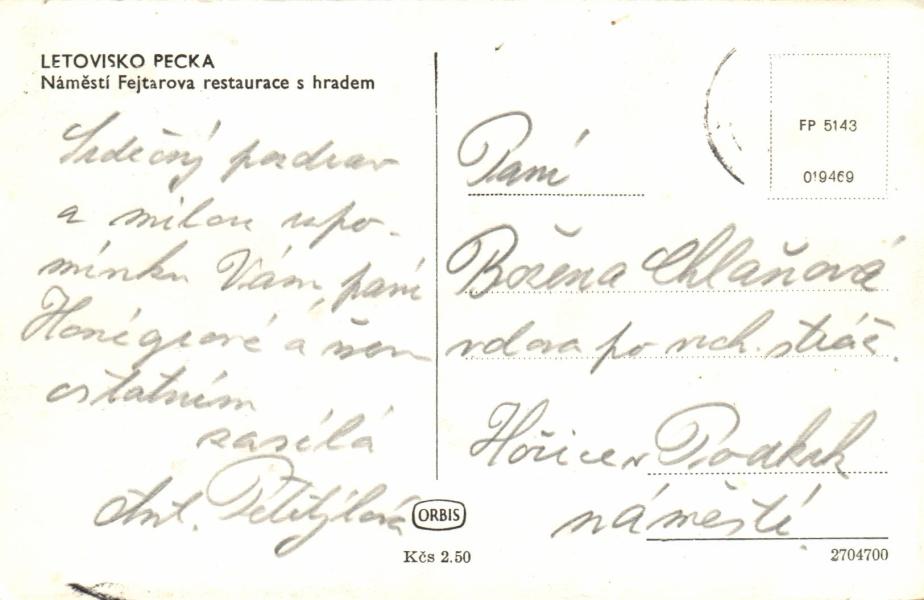 LETOVISKO PECKA
Náměstí Fejtarova restaurace s hradem
Srdečný pozdrav
a milou upo-
mínku Vám, paní
Honégrové a všem
ostatním
zasílá
Ant.
Paní
Božena Chlaňová
vdova po vrch. stráž.
Hořice v Podkrk
náměstí.
FP 5143
019469
ORBIS
Kčs 2.50
2704700